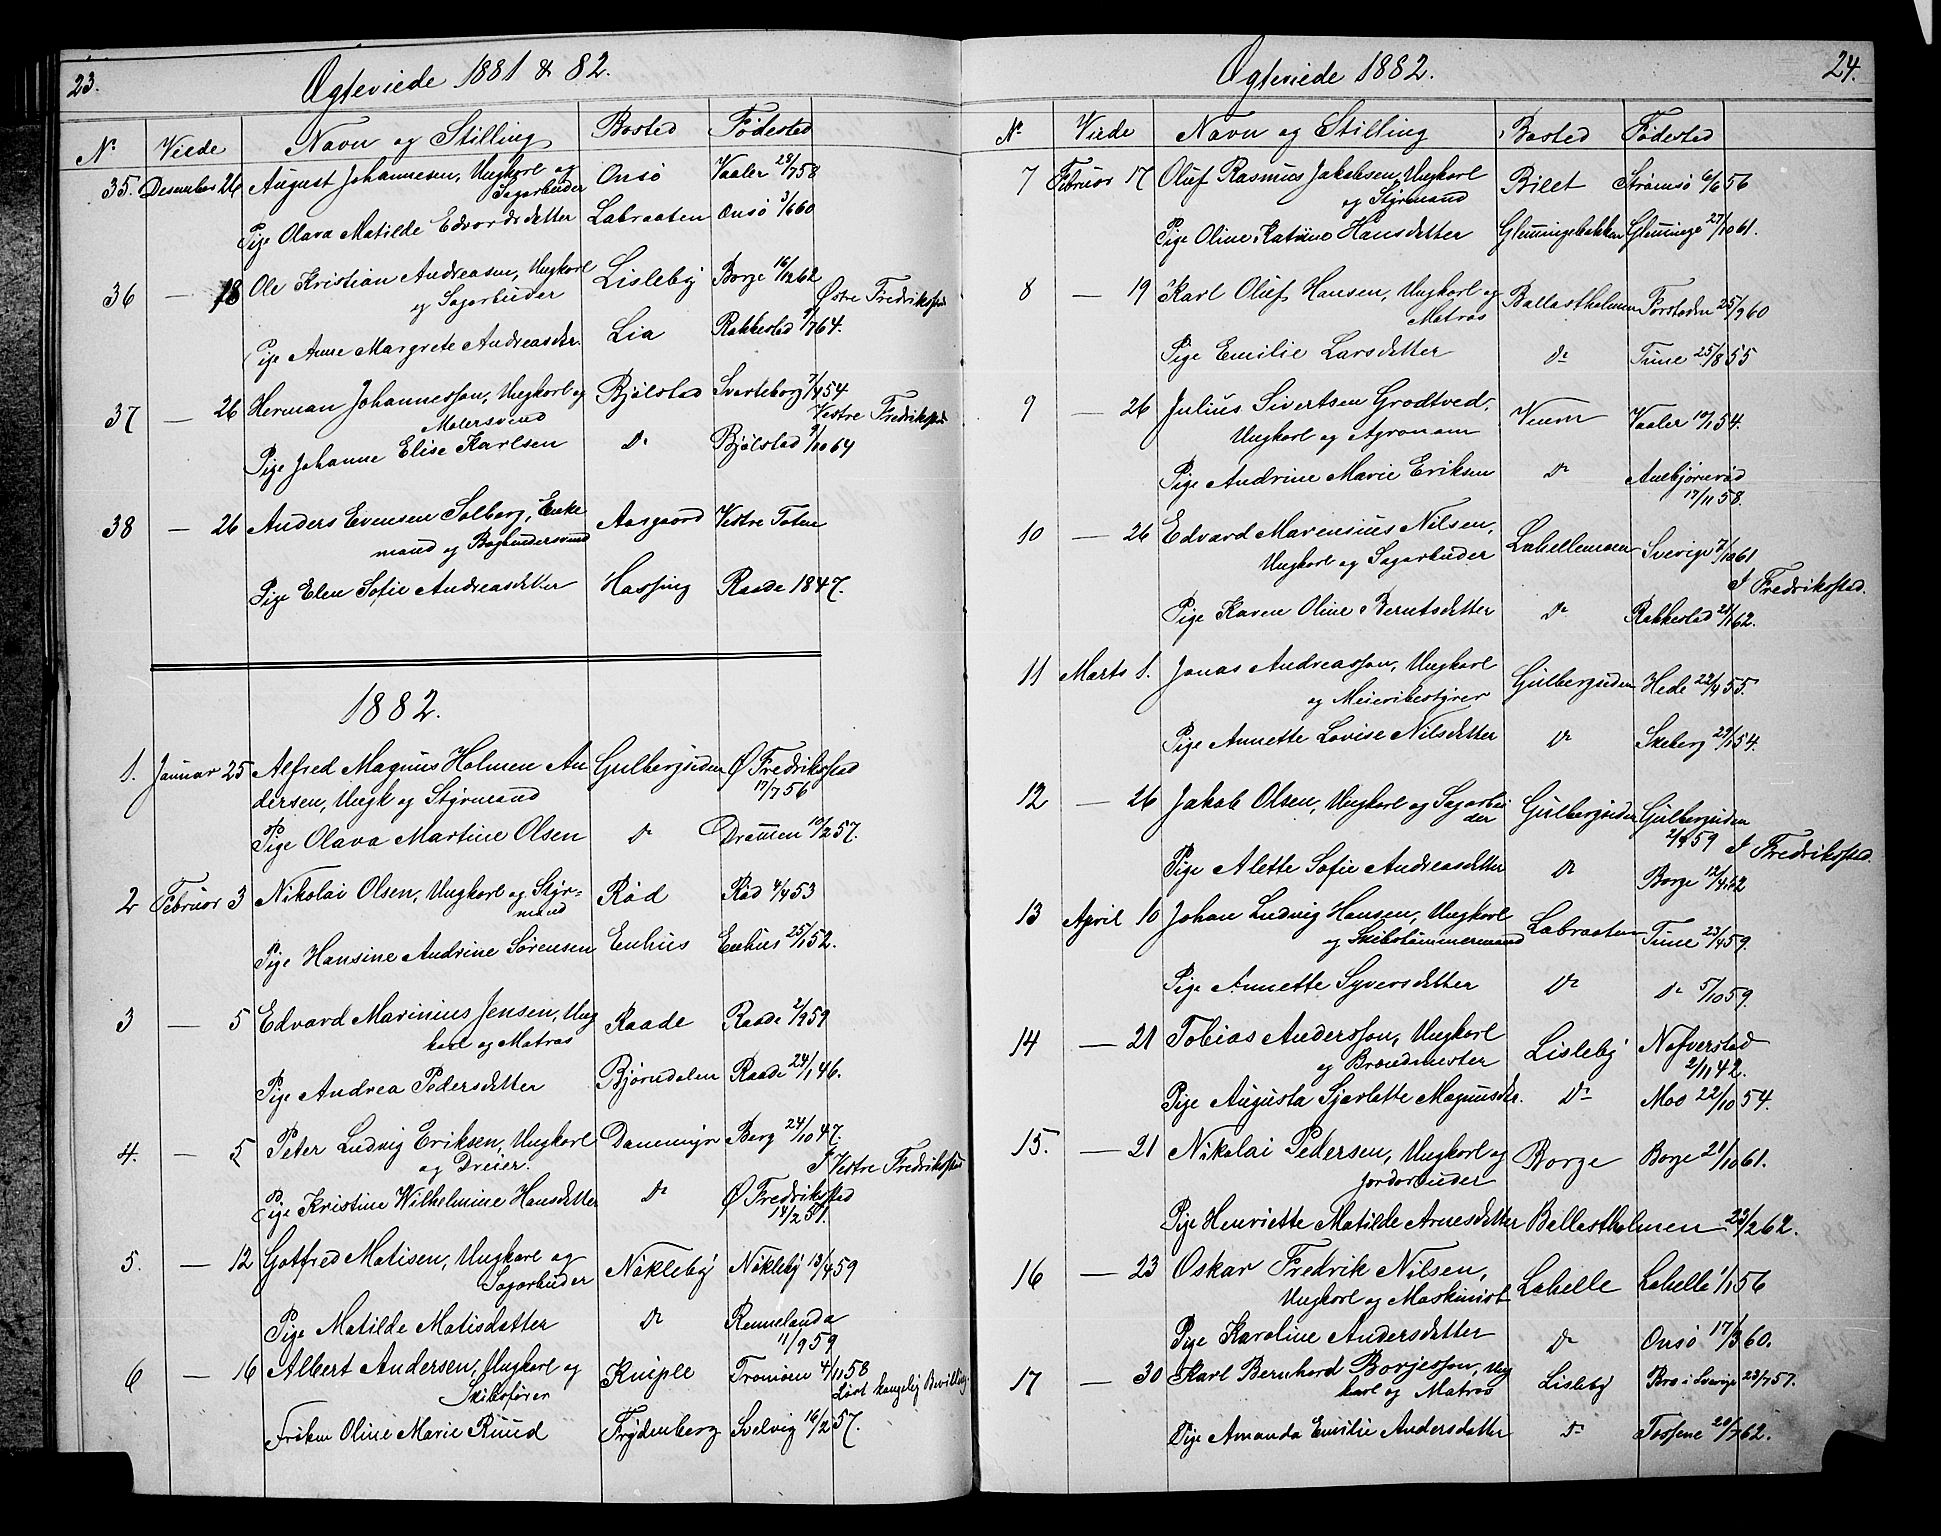 23.
Ogteviede 1881 & 82.
No Viede Navn og Stilling Bosted Födested
35. Desember 26 August Johannesen, Ungkarl og Onsö Vaaler 29/7 58
Sagarbeider
Pige Olava Matilde Edvardsdetter Labraaten Onsö 3/6 60
36 — 18 Ole Kristian Andreasen, Ungkarl Lisleby Borge 16/12 62
og Sagarbeider Østre Fredriksstad
Pige Anne Margrete Andreasdtr. Lia Rakkestad 9/7 64.
37 — 26 Herman Johannesson, Ungkarl og Bjölstad Svarteborg 7/4 54
Malersvend Vestre Fredriksstad
Pige Johanne Elise Karlsen Do Bjölstad 9/10 64
38 — 26 Anders Evensen Solberg, Enke Aasgaard Vestre Toten
mand og Bogbindersvend
Pige Elen Sofie Andreasdetter Hassing Raade 1847.
1882.
1. Januar 25 Alfred Magnus Holmen An Gulbergsiden Ø Fredriksstad
dersen, Ungk og Styrmand 17/7 56
Pige Olava Martine Olsen Do Drammen 10/2 57.
2 Februar 3 Nikolai Olsen, Ungkarl og Styr= Röd Röd 4/4 53
mand
Pige Hansine Andrine Sörensen Enhus Enhus 25/1 52.
3 — 5 Edvard Marinius Jensen, Ung Raade Raade 2/9 59
karl og Matros
Pige Andrea Pedersdetter Björndalen Raade 24/1 46.
4. — 5 Peter Ludvig Eriksen, Ungkarl Dammyr Berg 24/10 47.
og Dreier. I Vestre Fredriksstad
Pige Kristine Wilhelmine Hansdetter Do Ø Fredriksstad
14/2 51.
5. — 12 Gotfred Matisen, Ungkarl og Nökleby Nökleby 13/4 59
Sagarbeider
Pige Matilde Matisdatter Do Rennelanda
11/9 59
6 — 16 Albert Andersen, Ungkarl og Kniple Tromöen 4/11 58
Skibsförer Löst kongelig Bevilling
Fröken Oline Marie Ruud Frydenberg Svelvig 16/2 57.
24.
Ogteviede 1882.
No Viede Navn og Stilling Bosted Födested
7 Februar 17 Oluf Rasmus Jakobsen, Ungkarl Bilet Strömsö 6/6 56
og Styrmand
Pige Oline Katrine Hansdetter Glemmingebakken Glemminge 27/10 61.
8 — 19 Karl Oluf Hansen, Ungkarl og Ballastholmen Forstaden 25/9 60
Matros
Pige Emilie Larsdetter Do Tune 25/8 55
9 — 26 Julius Sivertsen Grodtved, Veum Vaaler 10/1 54.
Ungkarl og Agronom
Pige Andrine Marie Eriksen Do Ambjörnröd
17/11 58.
10 — 26 Edvard Marensius Nilsen, Lahellemoen Sverige 7/10 61
Ungkarl og Sagarbeider I Fredriksstad.
Pige Karen Oline Berntsdetter Do Rakkestad 21/1 62.
11 Marts 1. Jonas Andreasson, Ungkarl Gulbergsiden Hede 22/4 55.
og Meieribestyrer
Pige Annette Lovise Nilsdetter Do Skeberg 29/1 54.
12 — 26 Jakob Olsen, Ungkarl og Sagarbei Gulbergsiden Gulbergsiden
der 2/4 59 I Fredriksstad.
Pige Alette Sofie Andreasdetter Do Borge 12/4 42
13 April 10 Johan Ludvig Hansen, Ungkarl Labraaten Tune 23/4 59.
og Skibstömmermand
Pige Annette Syversdetter Do Do 5/10 59.
14 — 21 Tobias Andersson, Ungkarl Lisleby Nafverstad
og Brændmester 2/11 42.
Pige Augusta Sjarlotte Magnusdtr. Do Moo 22/10 54.
15. — 21 Nikolai Pedersen, Ungkarl og Borge Borge 21/10 61.
Jordarbeider
Pige Henriette Matilde Arnesdetter Ballastholmen 23/2 62.
16 — 23 Oskar Fredrik Nilsen, Lahelle Lahelle 1/1 56
Ungkarl og Maskinist
Pige Karoline Andersdetter Do Onsö 17/3 60.
17 — 30 Karl Bernhard Borjesson, Ung Lisleby Bro i Sverige 23/7 57.
karl og Matros
Pige Amanda Emilie Andersdatter Do Tossene 20/7 62.